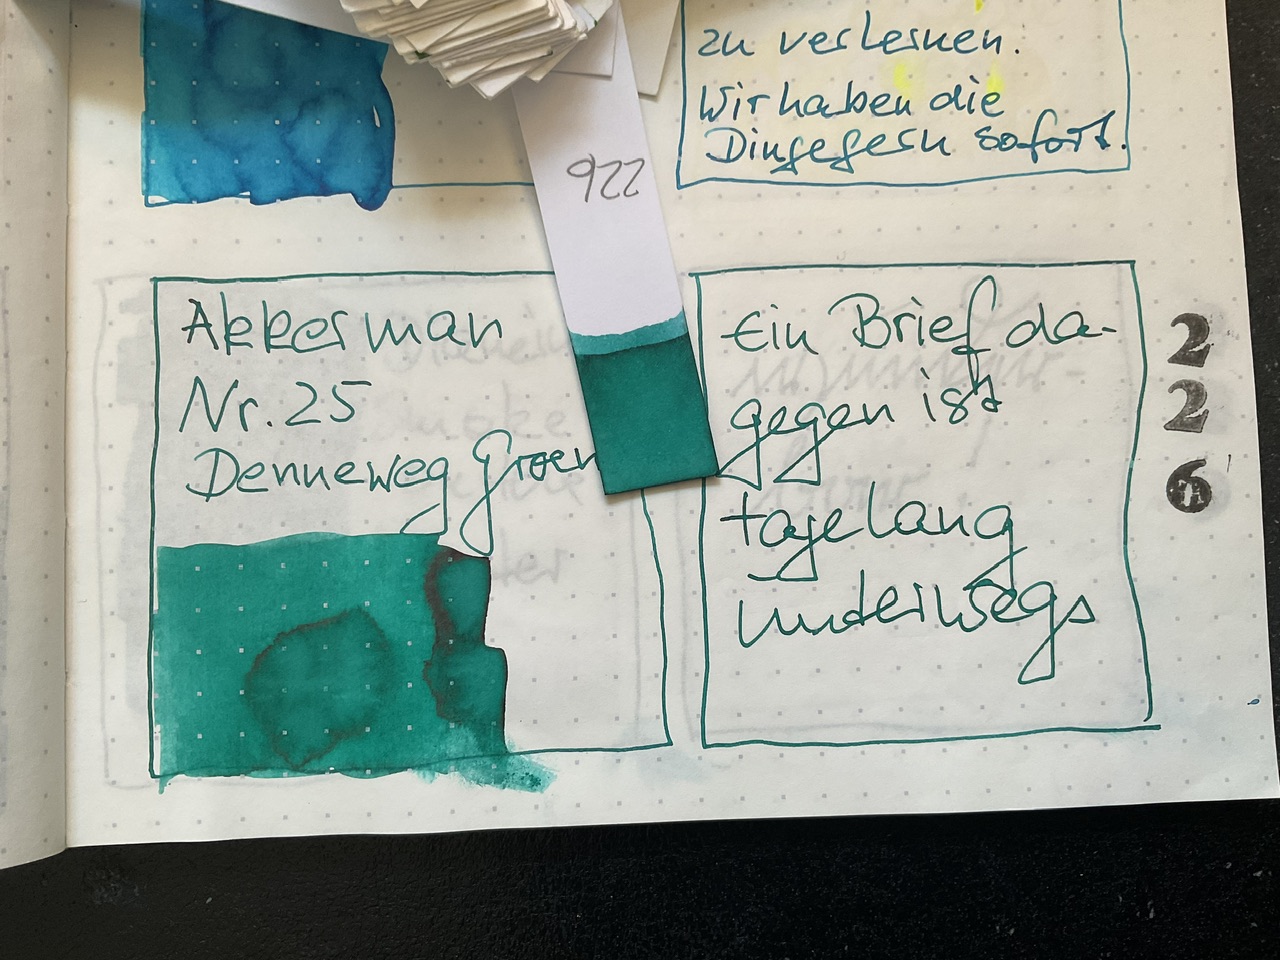 zu verlernen.
Wir haben die
Dinge gern sofort.
226
Akkerman
Nr. 25
Denneweg Groen
Ein Brief da-
gegen ist
tagelang
unterwegs
2
2
6